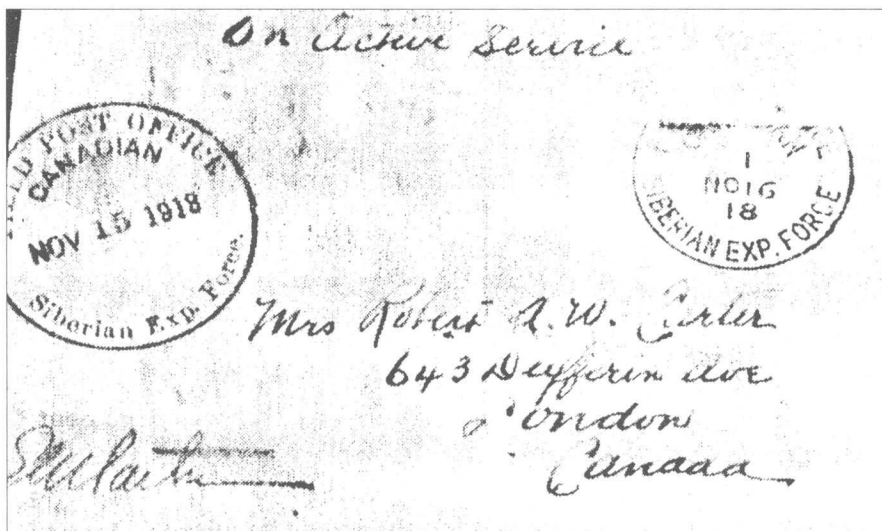 On Active Service
FIELD POST OFFICE
CANADIAN
NOV 15 1918
Siberian Exp. Force.
1
NO 16
18
SIBERIAN EXP. FORCE
Mrs Robert A. W. Carter
643 Dufferin Ave
London
Canada